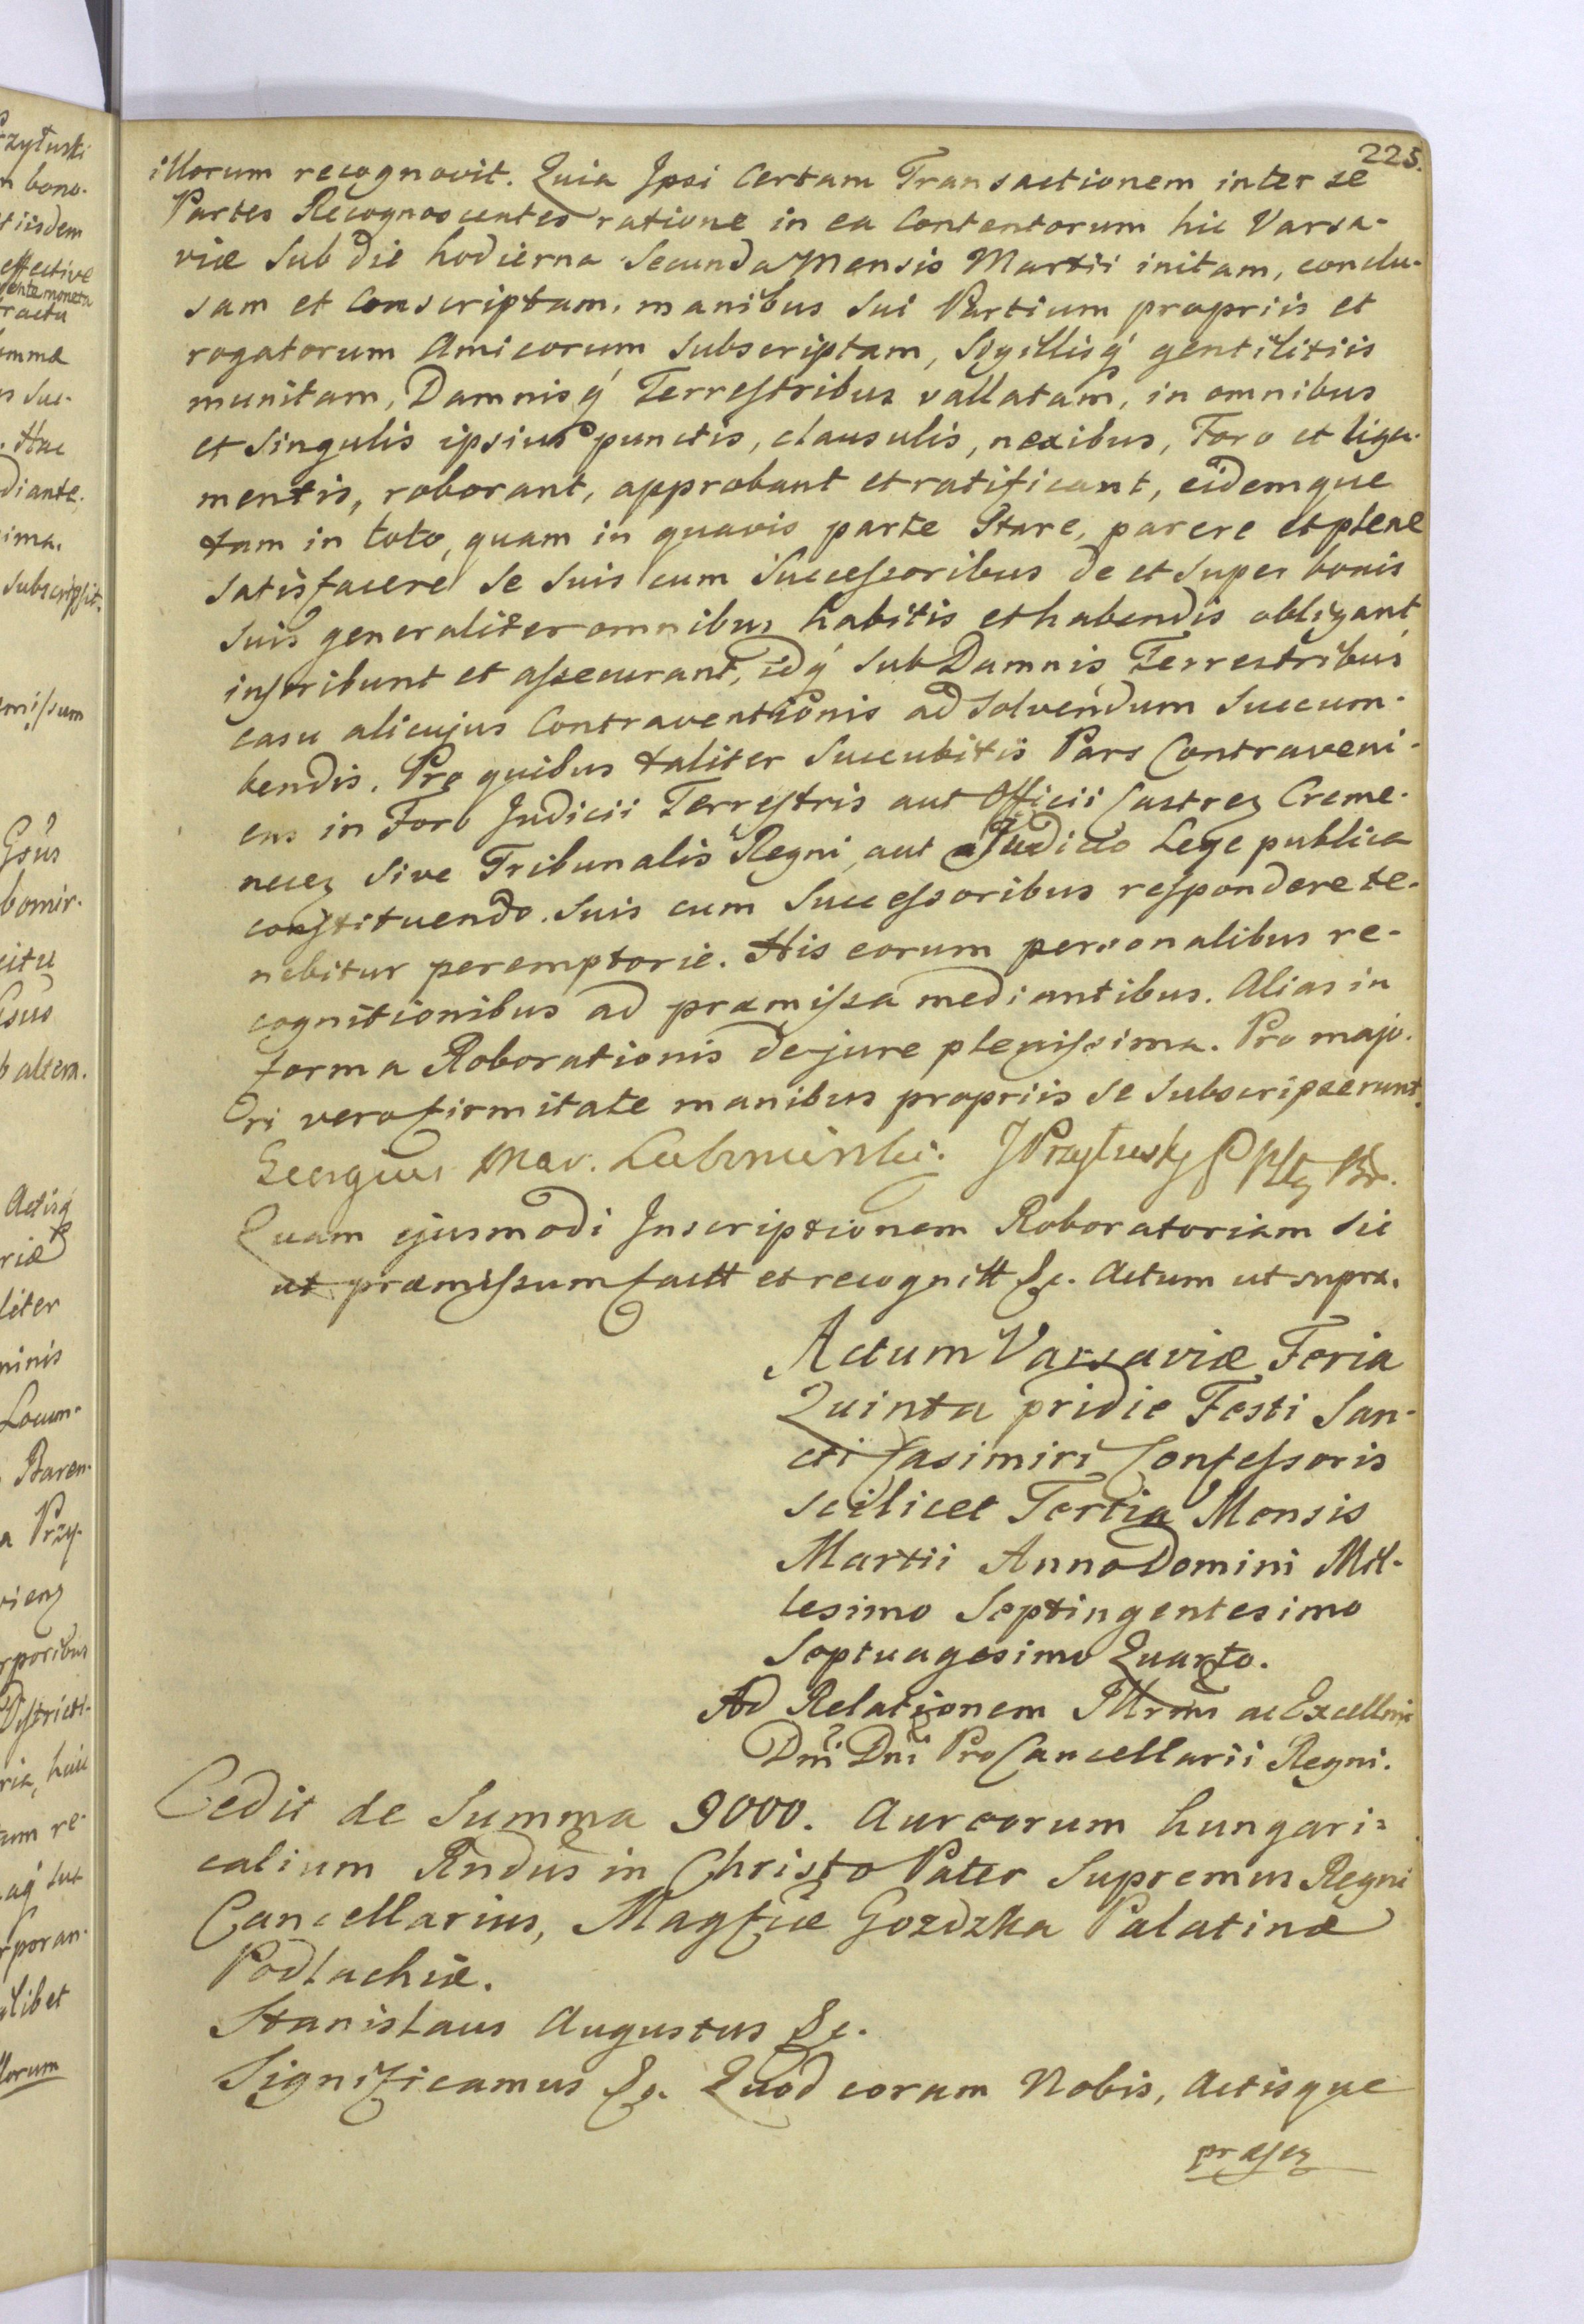 225.
illorum recognovit. Quia Ipsi Certam Transactionem inter se
Partes Recognoscentes ratione in ea Contentorum hic Varsa-
viæ Sub die hodierna Secunda Mensis Martii initam, conclu-
sam et Conscriptam, manibus Sui Partium propriis et
rogatorum Amicorum Subscriptam, Sygillisq' gentilitiis
munitam, Damnisq' Terrestribus vallatam, in omnibus
et Singulis ipsius punctis, clausulis, nexibus, Foro et liga-
mentis, roborant, approbant et ratificant, eidemque
tam in toto, quam in quavis parte Stare, parere et plene
Satisfacere Se Suis cum Successoribus de et Super bonis
Suis generaliter omnibus habitis et habendis obligant,
inscribunt et assecurant, idq' Sub Damnis Terrestribus
casu alicujus Contraventionis ad Solvendum Succum-
bendis. Pro quibus taliter Succubitis Pars Contraveni-
ens in Foro Judicii Terrestris aut Officii Castreq Creme-
neceq Sive Tribunalis Regni, aut Judicio Lege publica
constituendo. Suis cum Successoribus respondere te-
nebitur peremptorie. His eorum personalibus re-
cognitionibus ad præmissa mediantibus. Alias in
forma Roborationis de jure plenissima. Pro majo-
ri vero firmitate manibus propriis Se Subscripserunt.
Georgius Mar. Lubomirski. J Przyłusky
Quam ejusmodi Inscriptionem Roboratoriam Sic
ut præmissum factt et recognitt &c. Actum ut supra.
Actum Varsaviæ Feria
Quinta pridie Festi San-
cti Casimiri Confessoris
scilicet Tertia Mensis
Martii Anno Domini Mil-
lesimo Septingentesimo
Septuagesimo Quarto.
Ad Relationem Illrmi ac Excellmi
Dni Dni Pro Cancellarii Regni.
Cedit de Summa 9000. Aureorum hungari=
calium Rndus in Christo Pater Supremus Regni
Cancellarius, Magfcæ Gozdzka Palatinæ
Podlachiæ.
Stanislaus Augustus &c.
Significamus &c. Quod coram Nobis, Actisque
præseq